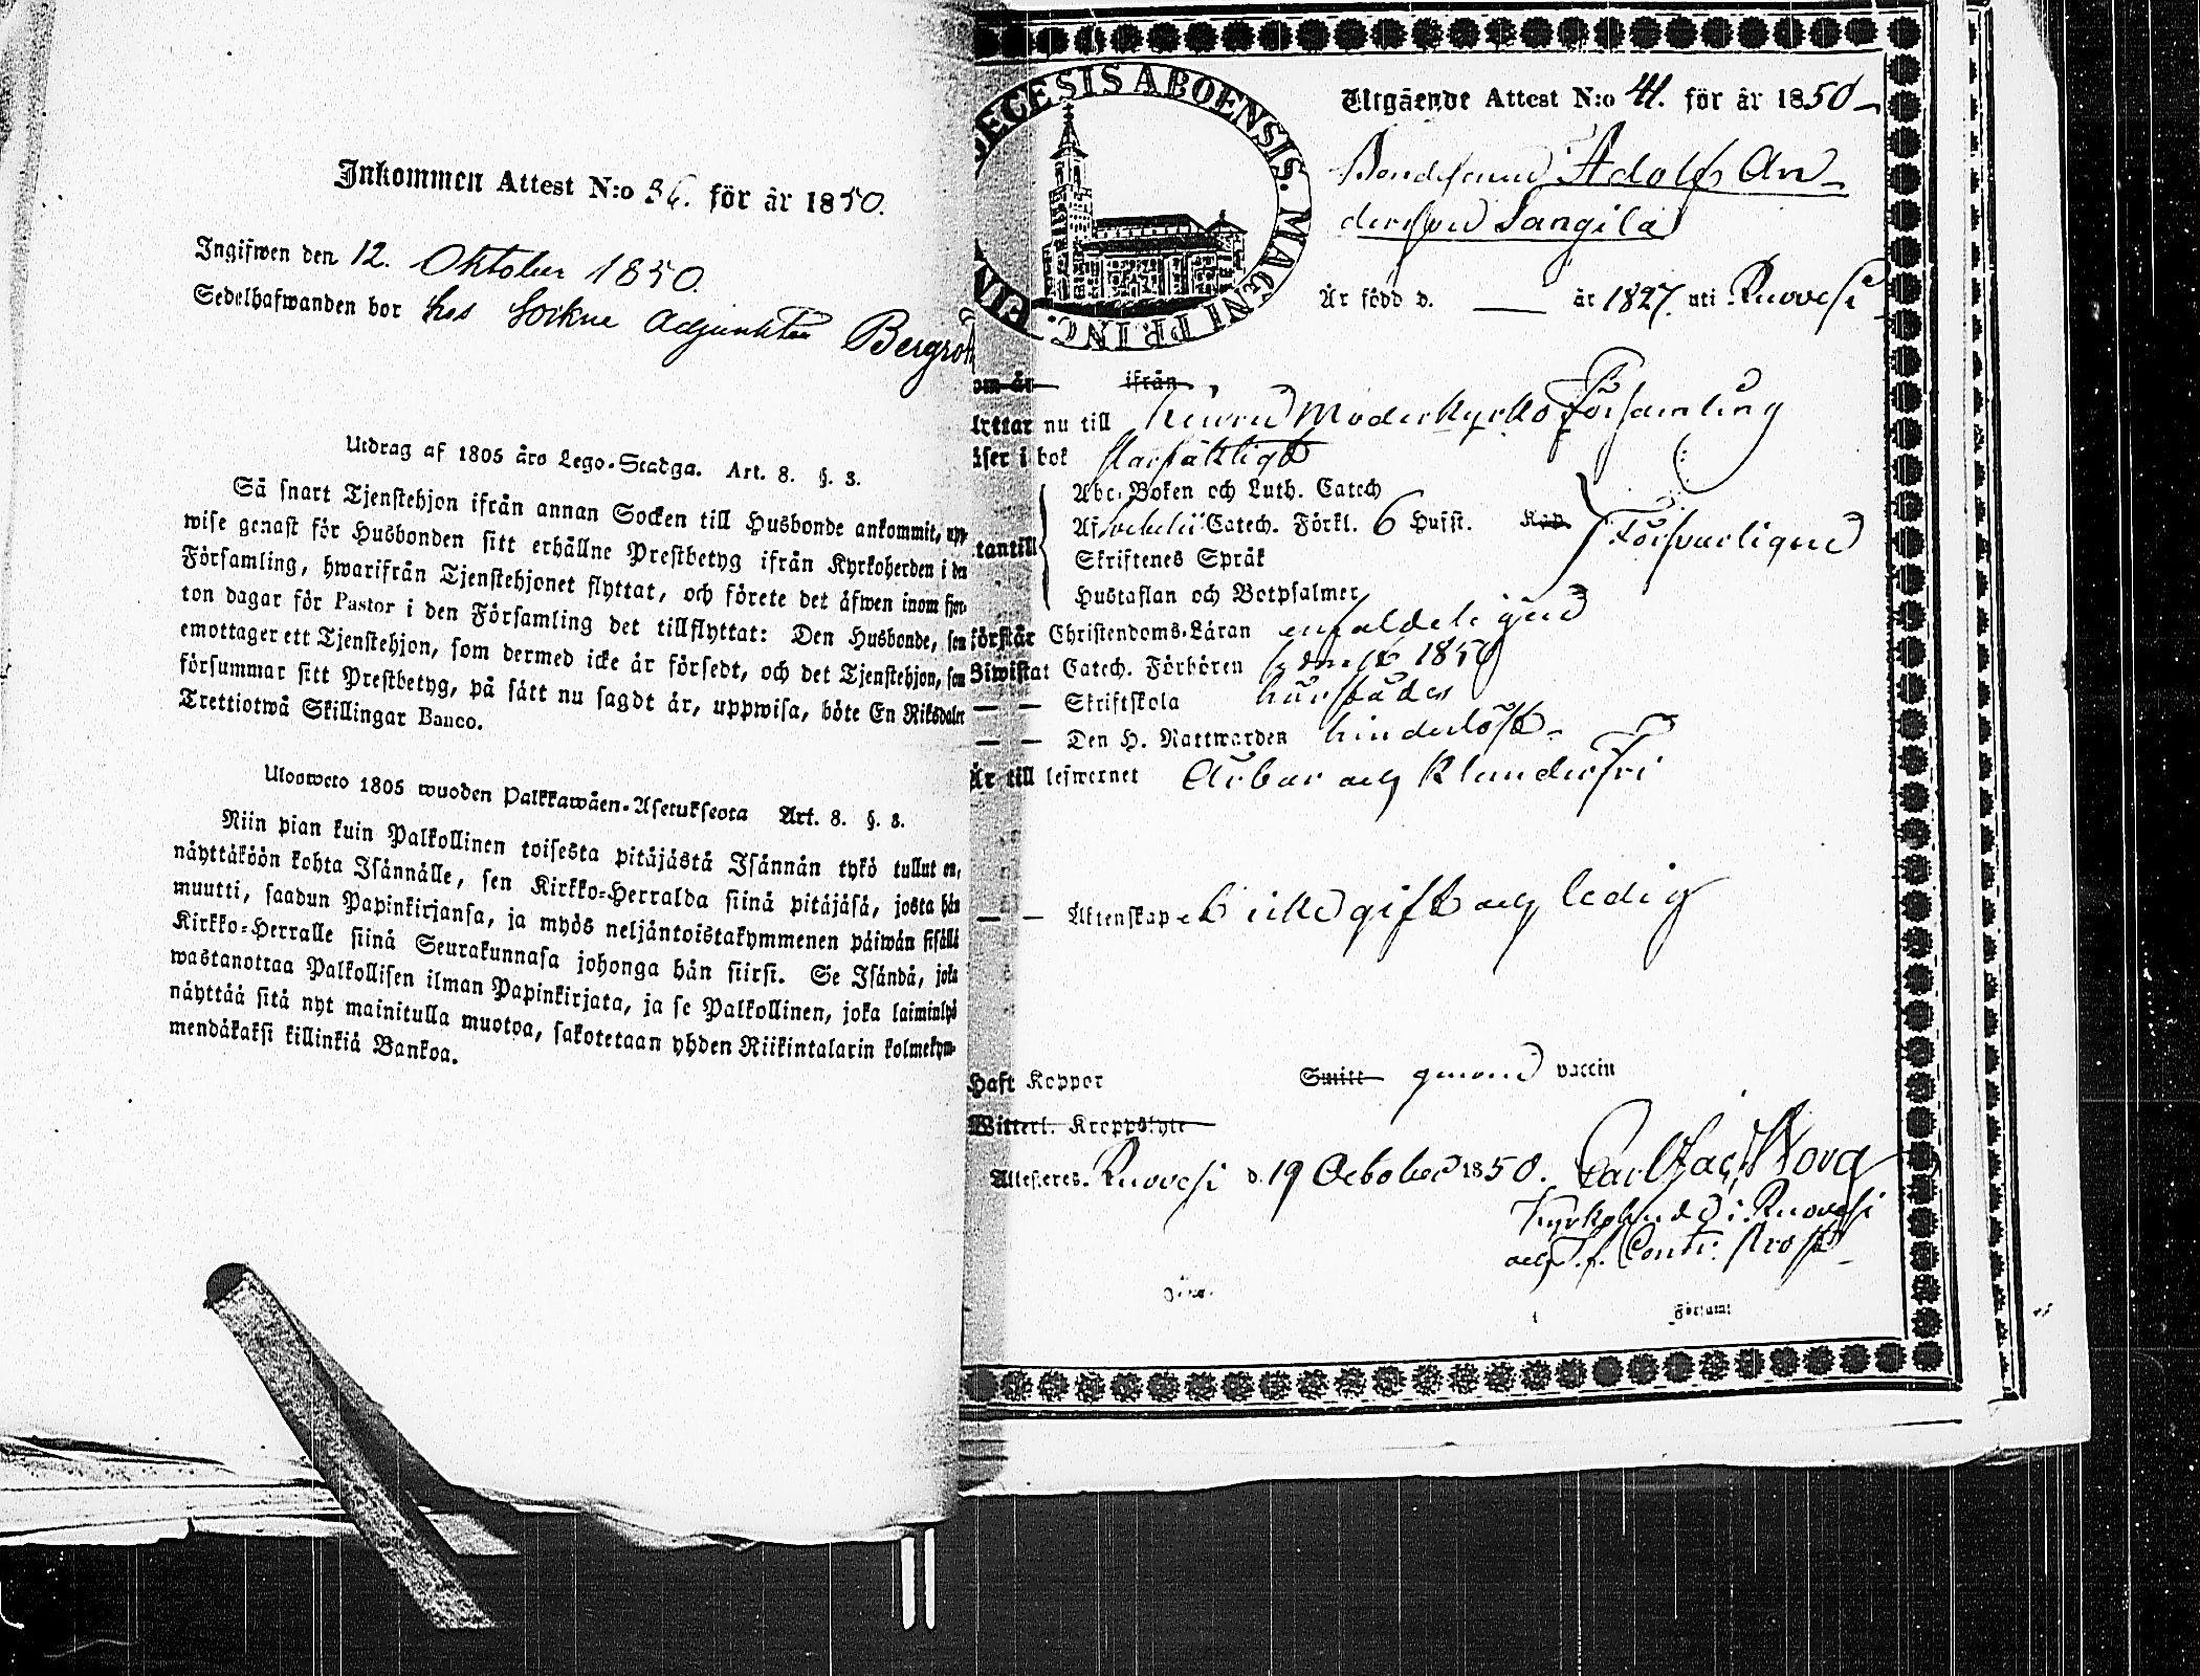 Inkommen Attest N:o 36. för år 1850.
Ingifwen den 12. Oktober 1850.
Sedelhafwanden bor hos Sockne Adjunkten Bergroth
Utdrag af 1805 års Lego-Stadga. Art. 8. §. 3.
Så snart Tjenstehjon ifrån annan Socken till Husbonde ankommit, upp-
wise genast för Husbonden sitt erhållne Prestbetyg ifrån Kyrkoherden i den
Församling, hwarifrån Tjenstehjonet flyttat, och förete det äfwen inom fjor-
ton dagar för Pastor i den Församling det tillflyttat: Den Husbonde, som
emottager ett Tjenstehjon, som dermed icke är försedt, och det Tjenstehjon, som
försummar sitt Prestbetyg, på sätt nu sagdt är, uppwisa, böte En Riksdaler
Trettiotwå Skillingar Banco.
Ulosweto 1805 wuoden Palkkawäen-Asetuksesta Art. 8. §. 3.
Niin pian kuin Palkollinen toisesta pitäjästä Isännän tykö tullut on,
näyttäköön kohta Isännälle, sen Kirkko-Herralda siinä pitäjäsä, josta hän
muutti, saadun Papinkirjansa, ja myös neljäntoistakymmenen päiwän sisällä
Kirkko-Herralle siinä Seurakunnasa johonga hän siirsi. Se Isändä, joka
wastanottaa Palkollisen ilman Papinkirjata, ja se Palkollinen, joka laiminlyö
näyttää sitä nyt mainitulla muotoa, sakotetaan yhden Riikintalarin kolmekym-
mendäkaksi killinkiä Bankoa.
ECESIS ABOENSIS. MAGNI PRINC. FIN
Utgående Attest N:o 41. för år 1850
Bondesonen Adolf An-
dersson Sangila
Är född d. — år 1827. uti Ruovesi
om år ifrån
lyttar nu till Keuru Moderkyrko Församling
äser i bok
Abc-Boken och Luth. Catech
Af Svebelii Catech. Förkl. 6 Hufst. Kap.
tantill Försvarligen
Skriftenes Språk
Hustaflan och Botpsalmer
förstår Christendoms-Läran enfaldeligen
Biwistat Catech. Förhören 1850
— — Skriftskola
— — Den H. Nattwarden hinderlöst
Är till lefwernet Ärbar och Klanderfri
— — Äktenskapet icke gift och ledig
Haft Koppor Smitt genom vaccin
Witterl. Kroppslyte
Attesteres. Ruovesi d. 19 October 1850. Carl Jac. Worg
Kyrkoherde i Ruovesi
och T. f. Contr. Prost
Församl